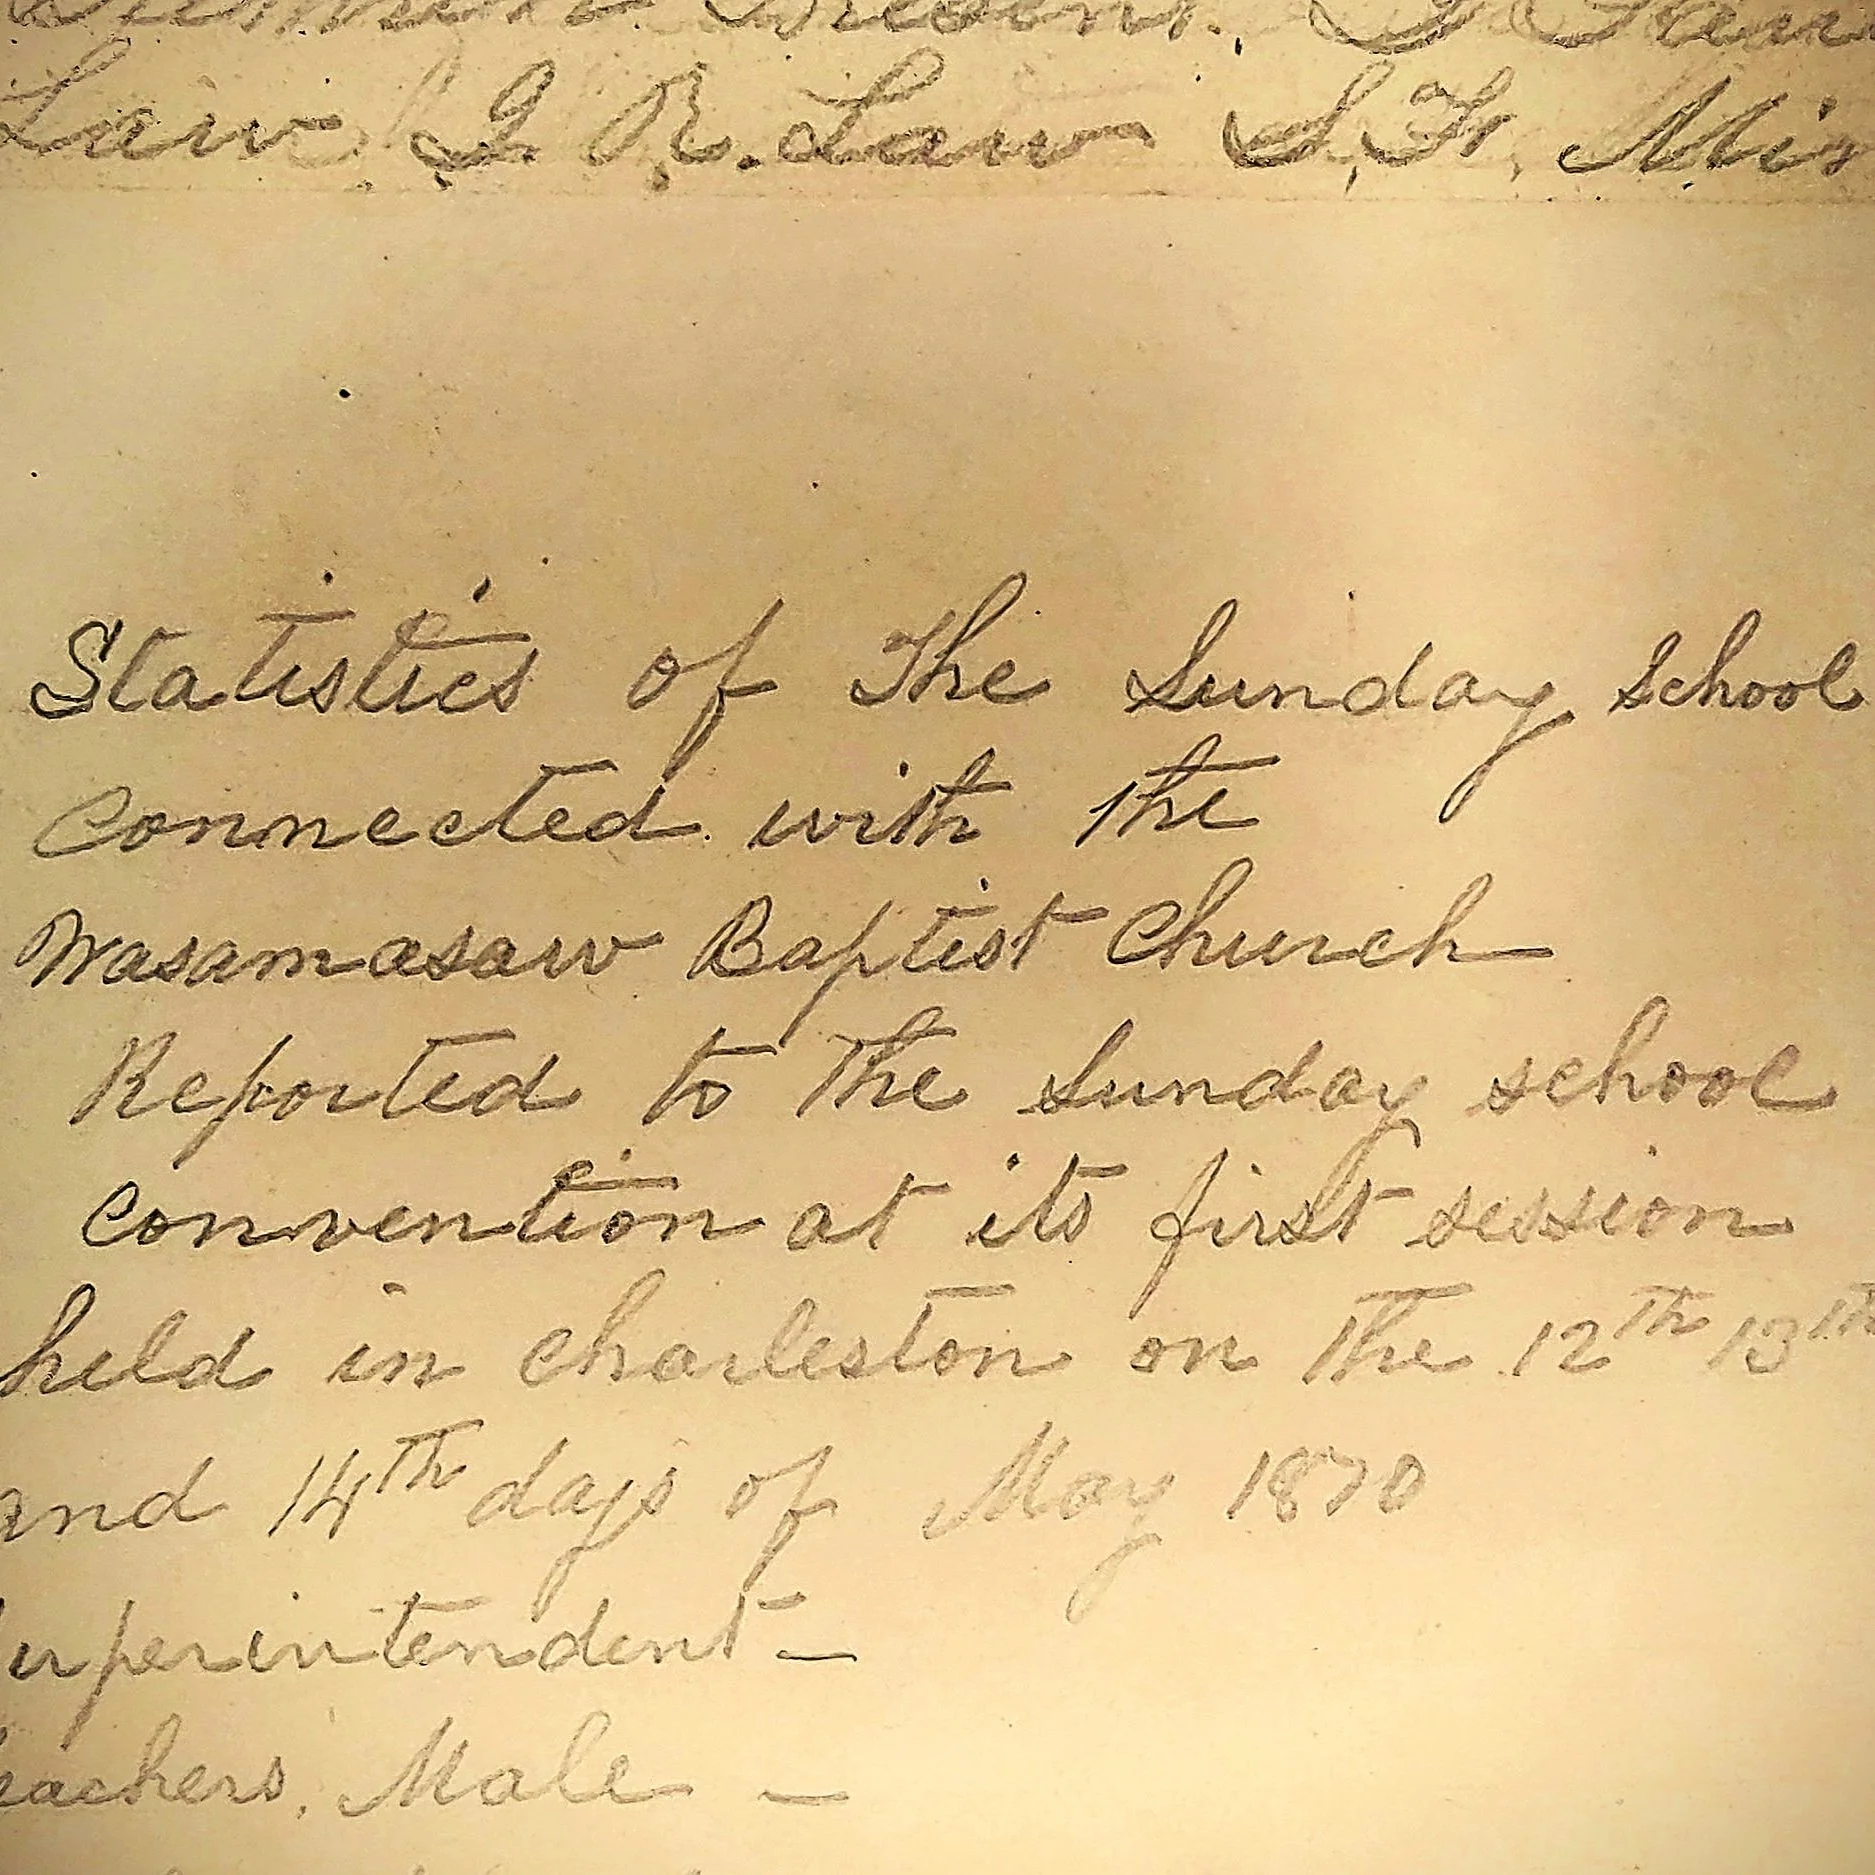 Law J R. Law S, F,
Statistics of The Sunday School
Connected with the
Wasamasaw Baptist Church
Reported to The Sunday school
Convention at its first session
held in Charleston on The 12th 13th
and 14th days of May 1870
uperintendent —
eachers, Male —